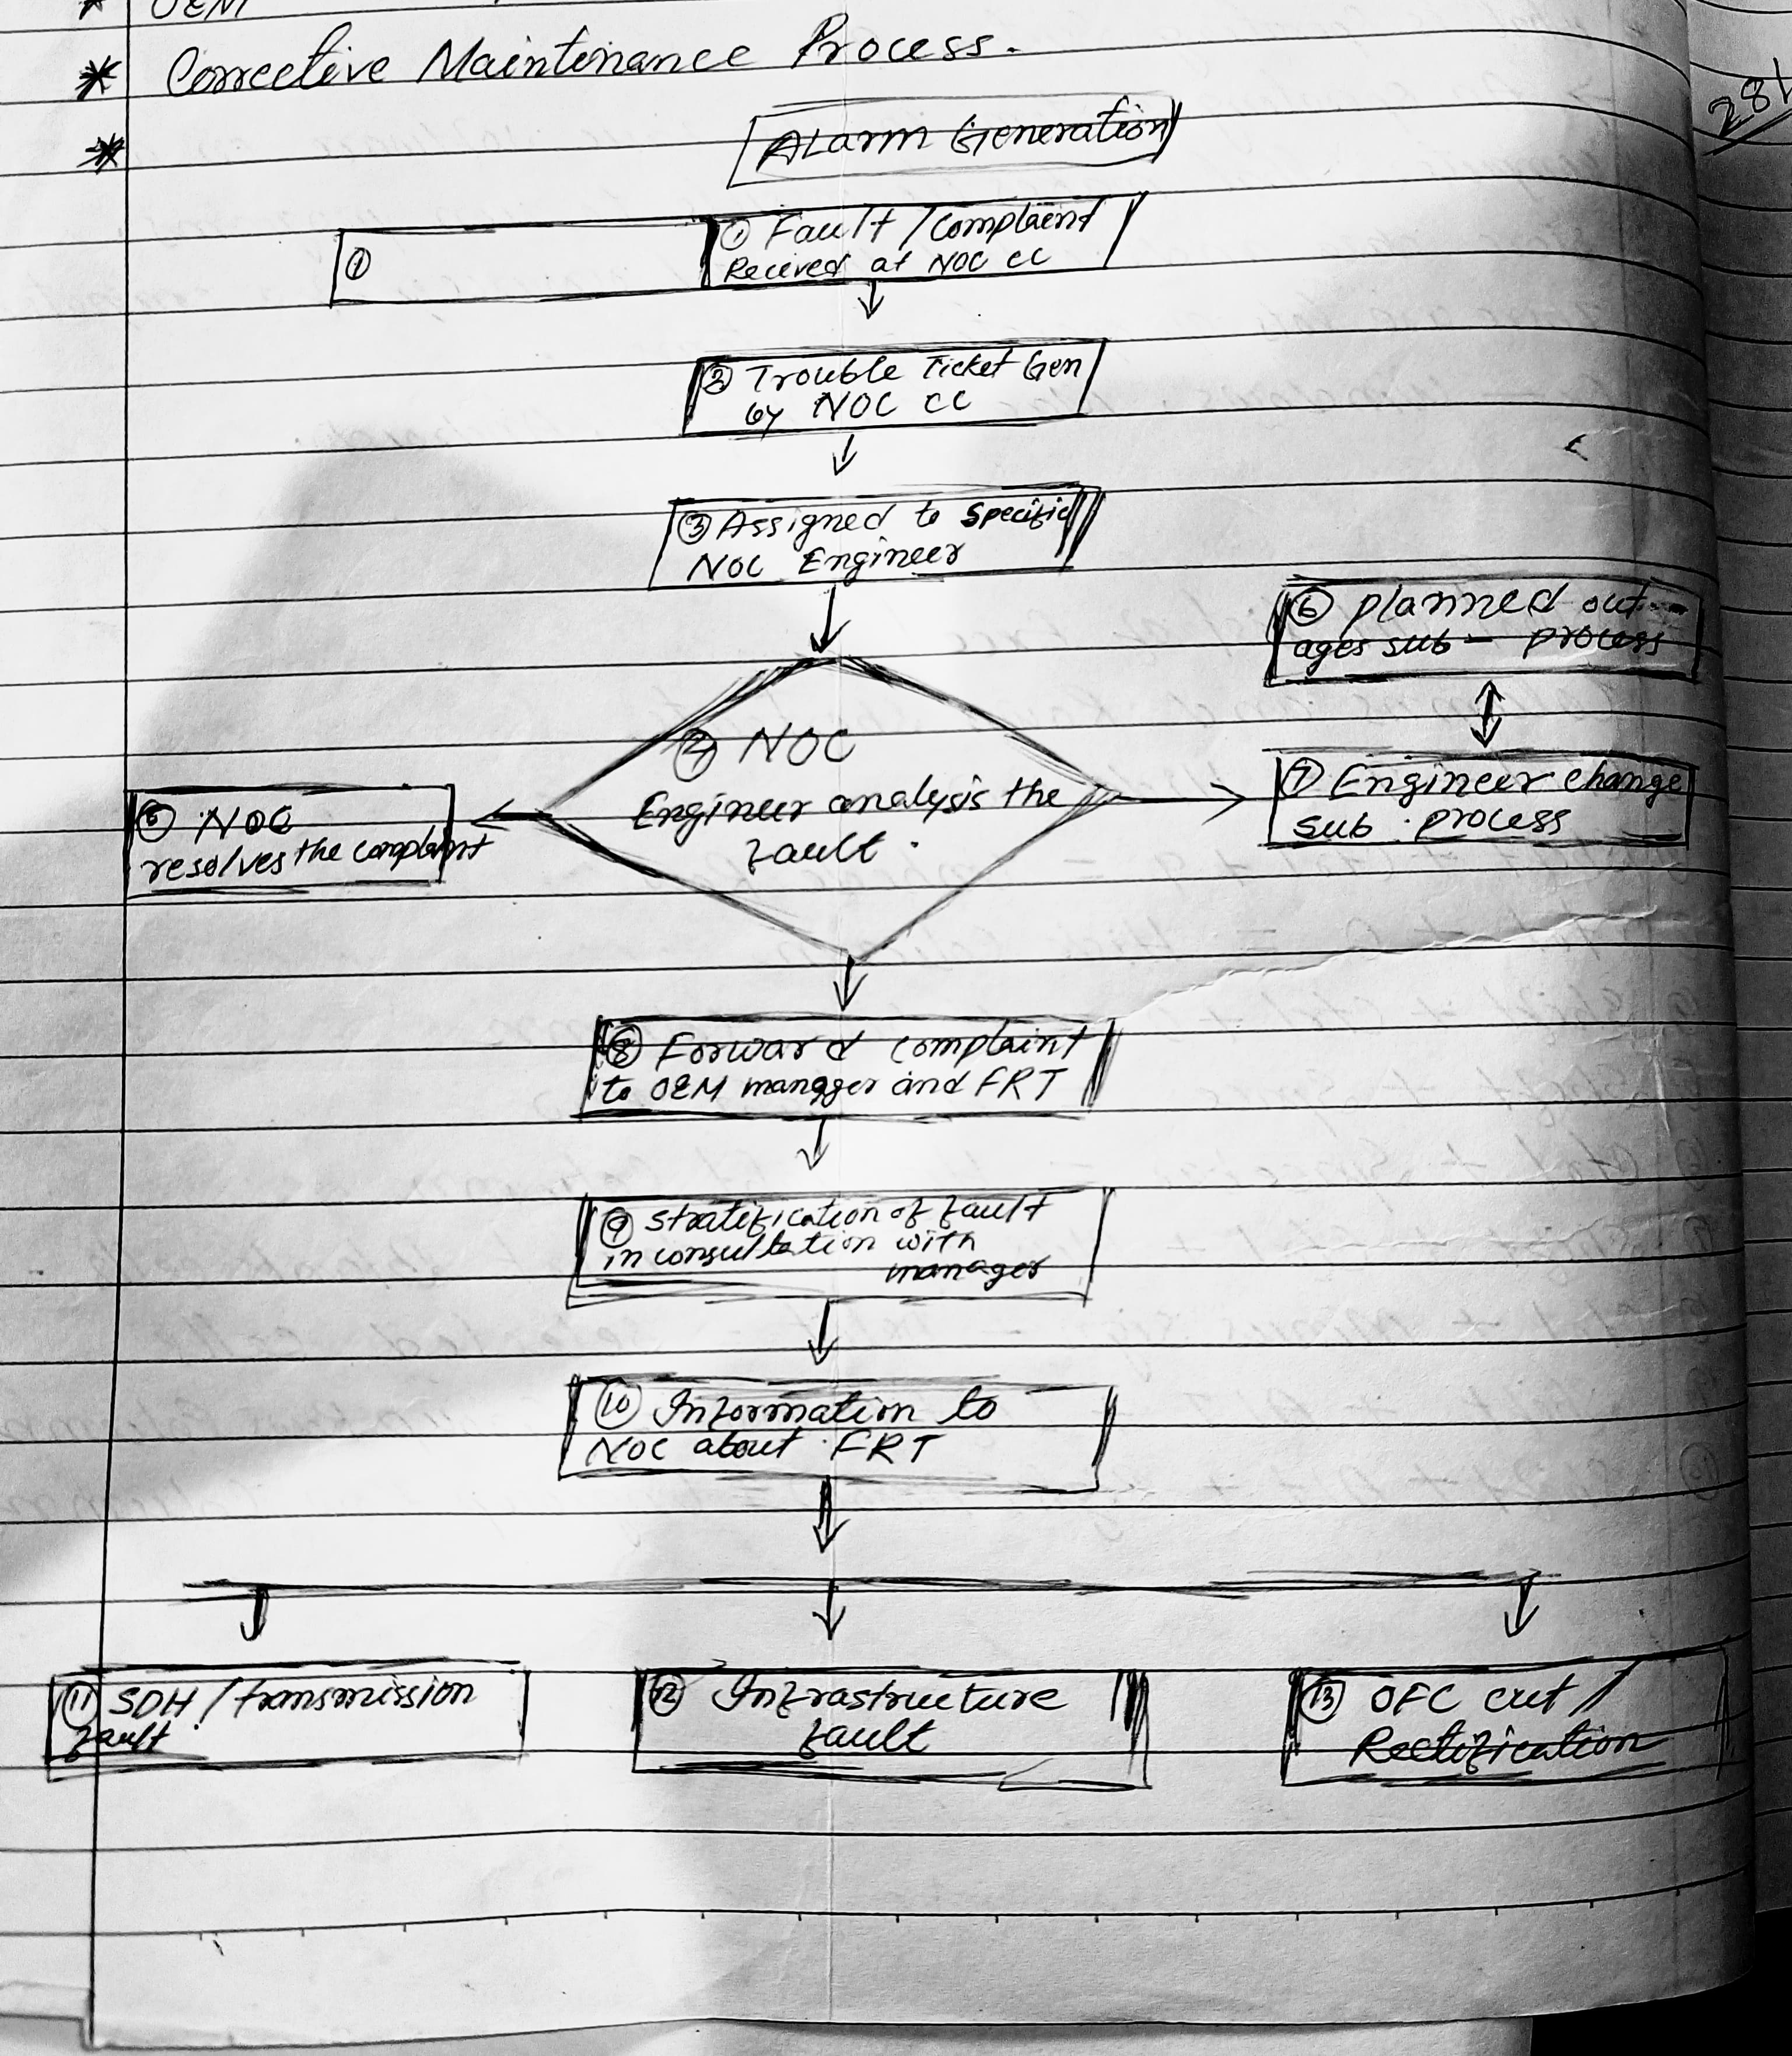 * OEM
* Corrective Maintenance Process.
281
*
Alarm Generation
①
① Fault / Complaint
Recived at NOC CC
② Trouble Ticket Gen
by NOC CC
③ Assigned to Specific
NOC Engineer
⑥ planned out-
ages sub - process
④ NOC
Engineer analysis the
fault.
⑤ NOC
resolves the complaint
⑦ Engineer change
sub process
⑧ Forward complaint
to O&M manager and FRT
⑨ stratification of fault
in consultation with
manager
⑩ Information to
NOC about FRT
⑪ SDH / transmission
fault
⑫ Infrastructure
fault
⑬ OFC cut /
Rectification